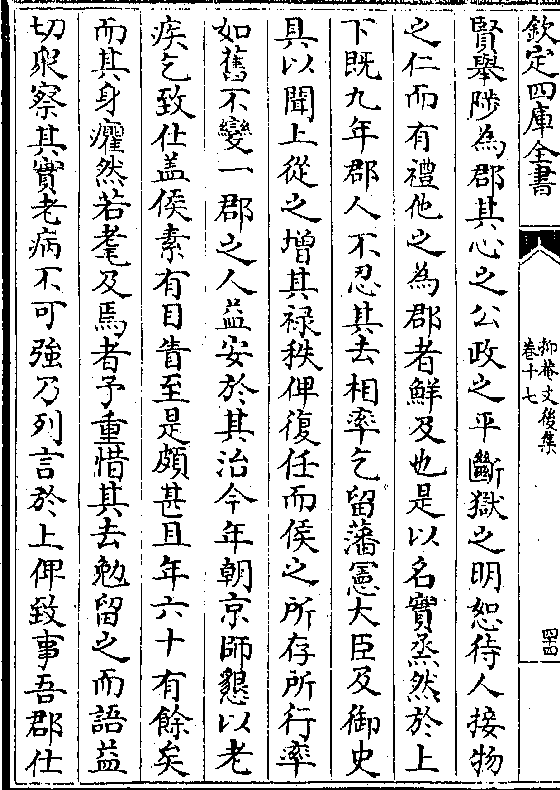 欽定四庫全書
抑菴文後集
卷十七
四十四
賢舉陟為郡其心之公政之平斷獄之明恕待人接物
之仁而有禮他之為郡者鮮及也是以名實烝然於上
下既九年郡人不忍其去相率乞留藩憲大臣及御史
具以聞上從之增其禄秩俾復任而侯之所存所行率
如舊不變一郡之人益安於其治今年朝京師懇以老
疾乞致仕盖侯素有目眚至是頗甚且年六十有餘矣
而其身癯然若耄及焉者予重惜其去勉留之而語益
切聚察其實老病不可強乃列言於上俾致事吾郡仕